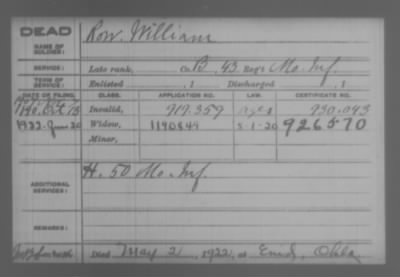 DEAD
NAME OF SOLDIER: Row. William
SERVICE: Late rank, Co. B, 43 Reg't Mo. Inf.
TERM OF SERVICE: Enlisted , 1 Discharged , 1
DATE OF FILING. CLASS. APPLICATION NO. LAW. CERTIFICATE NO.
1890. Oct 13 Invalid, 919.359 930.043
1922-June 20 Widow, 1190849 5-1-20 926570
Minor,
ADDITIONAL SERVICES: H. 50 Mo. Inf.
REMARKS:
Died May 2, 1922, at Enid, Okla